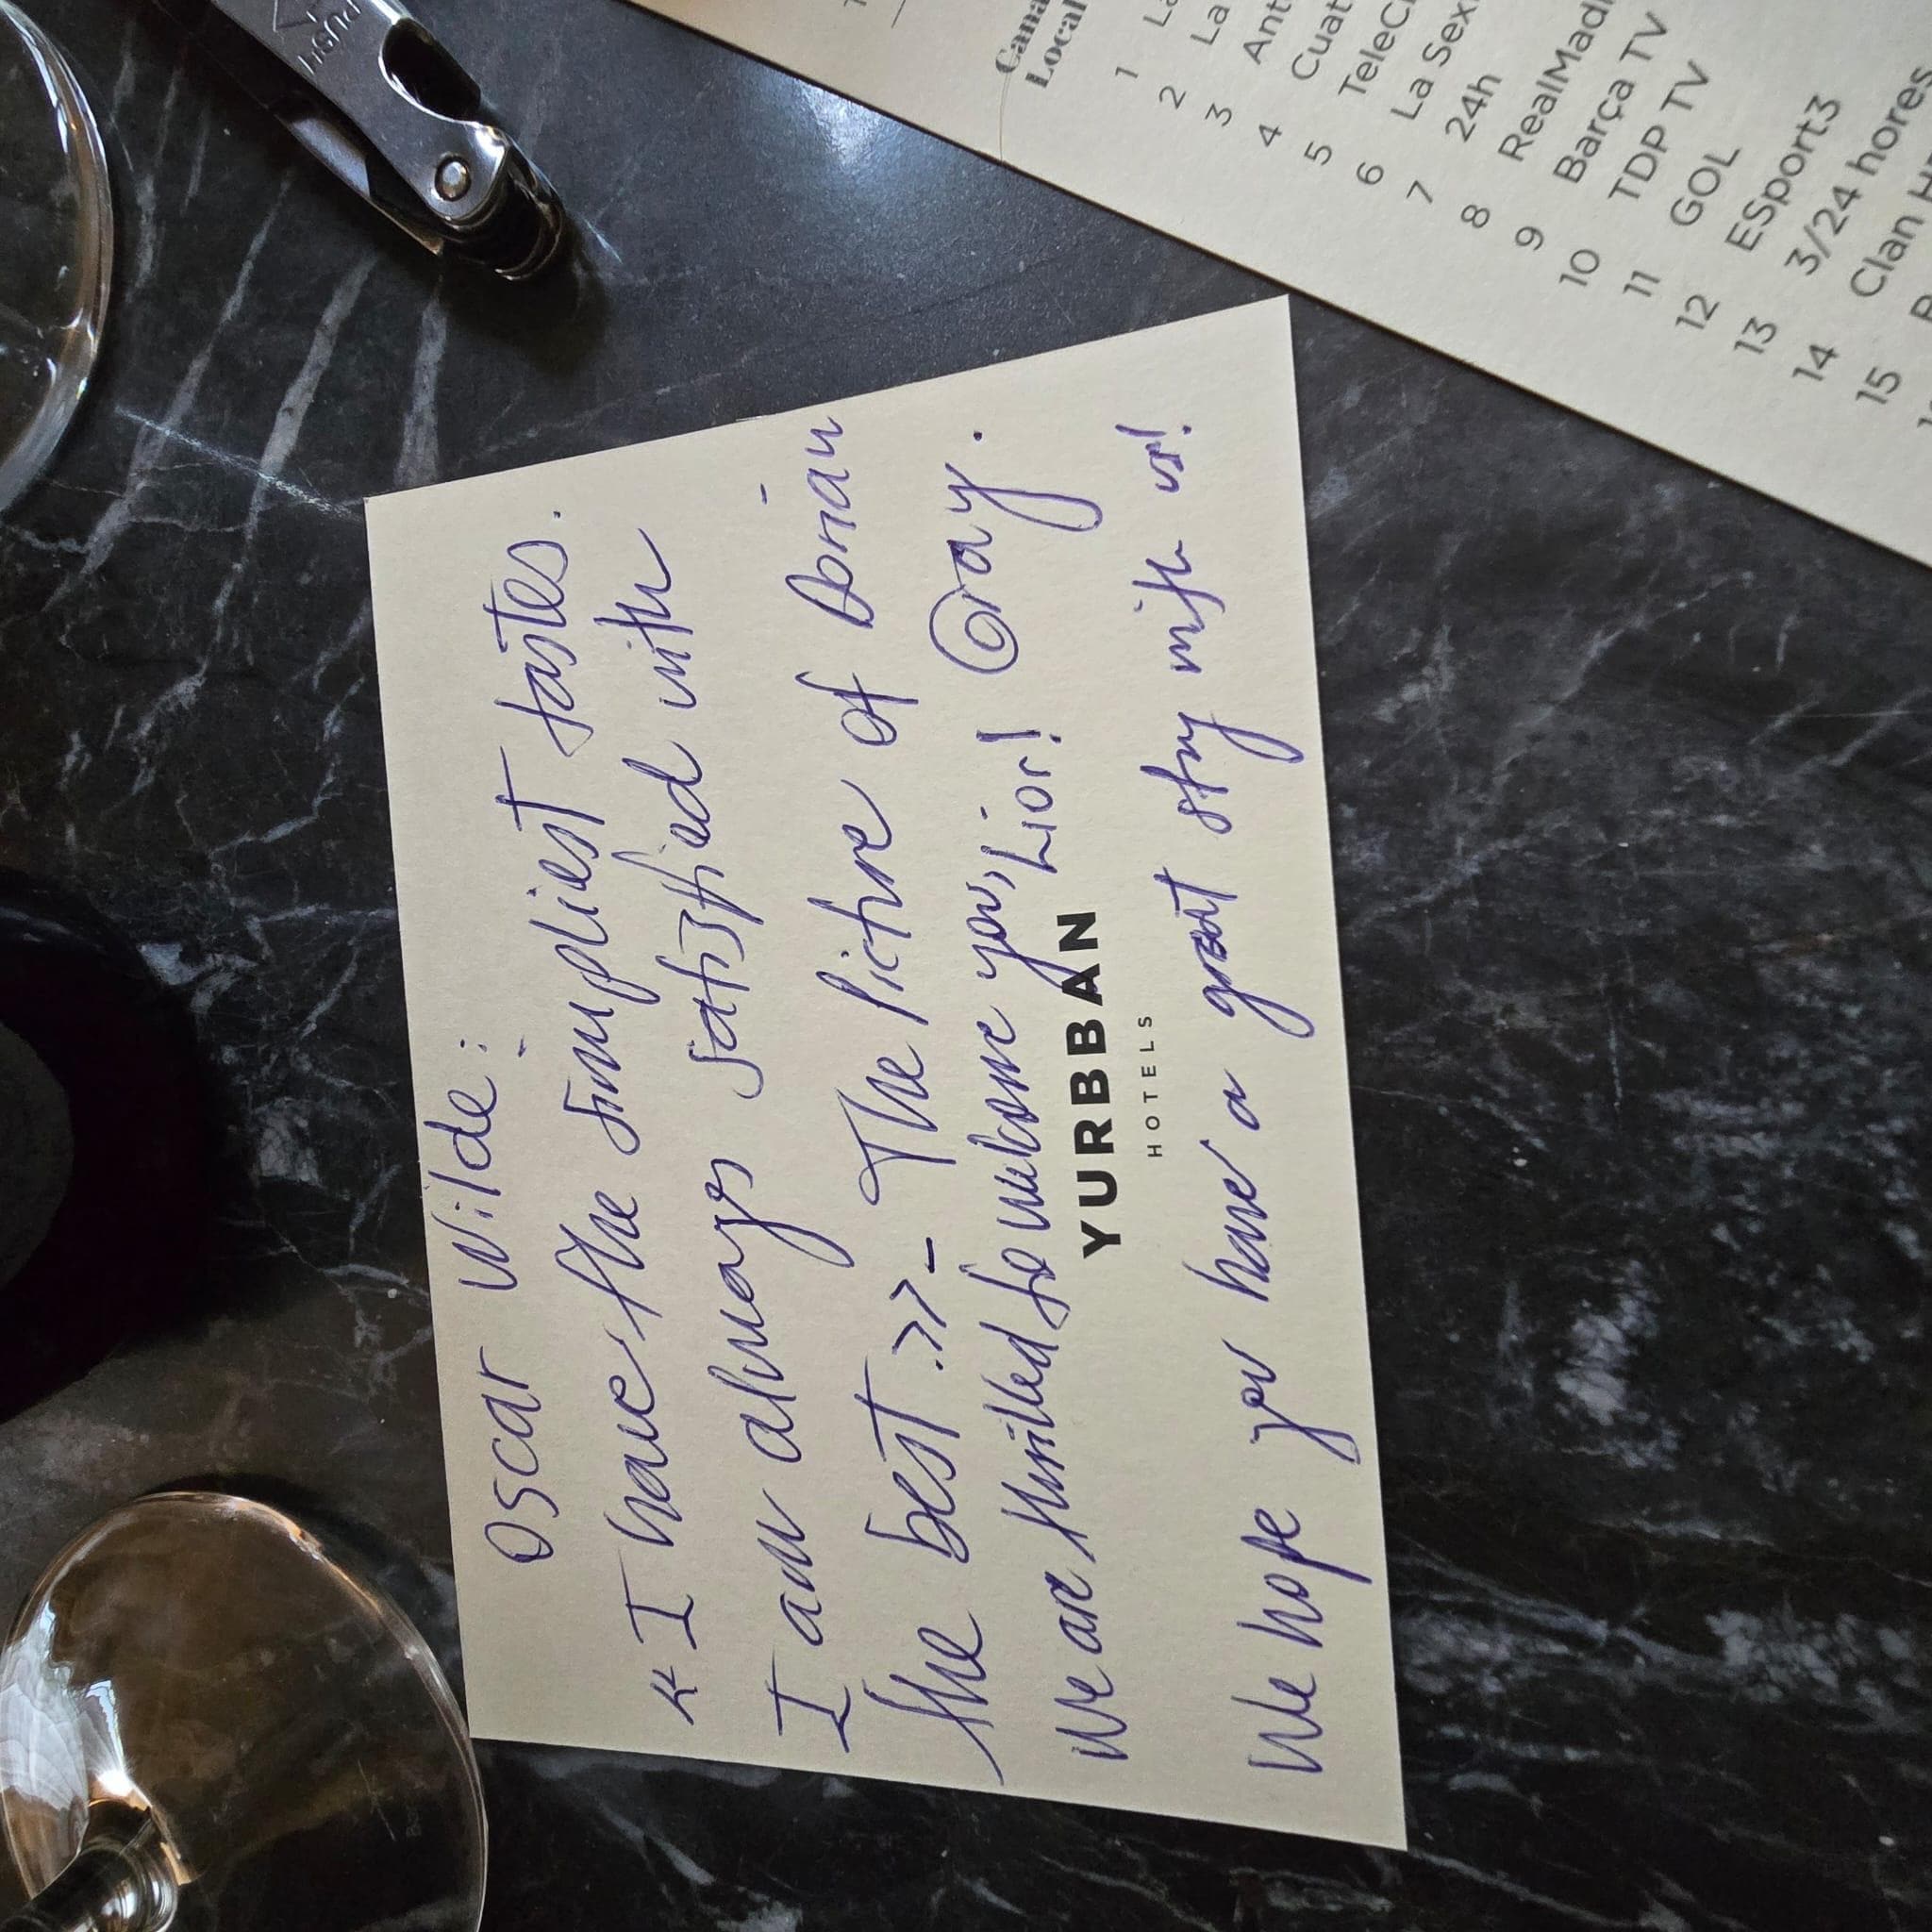 Oscar Wilde:
« I have the simpliest tastes.
I am always satisfied with
the best.» - The Picture of Dorian
Gray.
We are thrilled to welcome you, Lior!
YURBBAN
HOTELS
We hope you have a great stay with us!
PUSH
Local
1 La
2 La
3 Ant
4 Cuat
5 TeleCi
6 La Sex
7 24h
8 RealMadr
9 Barça TV
10 TDP TV
11 GOL
12 ESport3
13 3/24 hores
14 Clan H
15